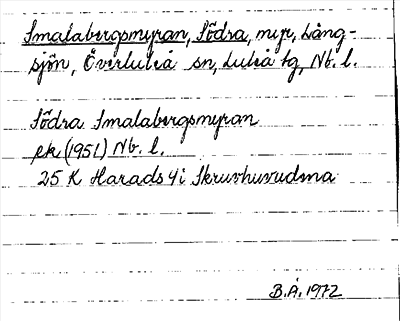 Smalabergsmyran, Södra, myr, Lång-
sjön, Överluleå sn, Luleå tg, Nb. l.
Södra Smalabergsmyran
ek (1951) Nb. l.
25 K Harads 4i Skruvhuvudma
B.Å. 1972